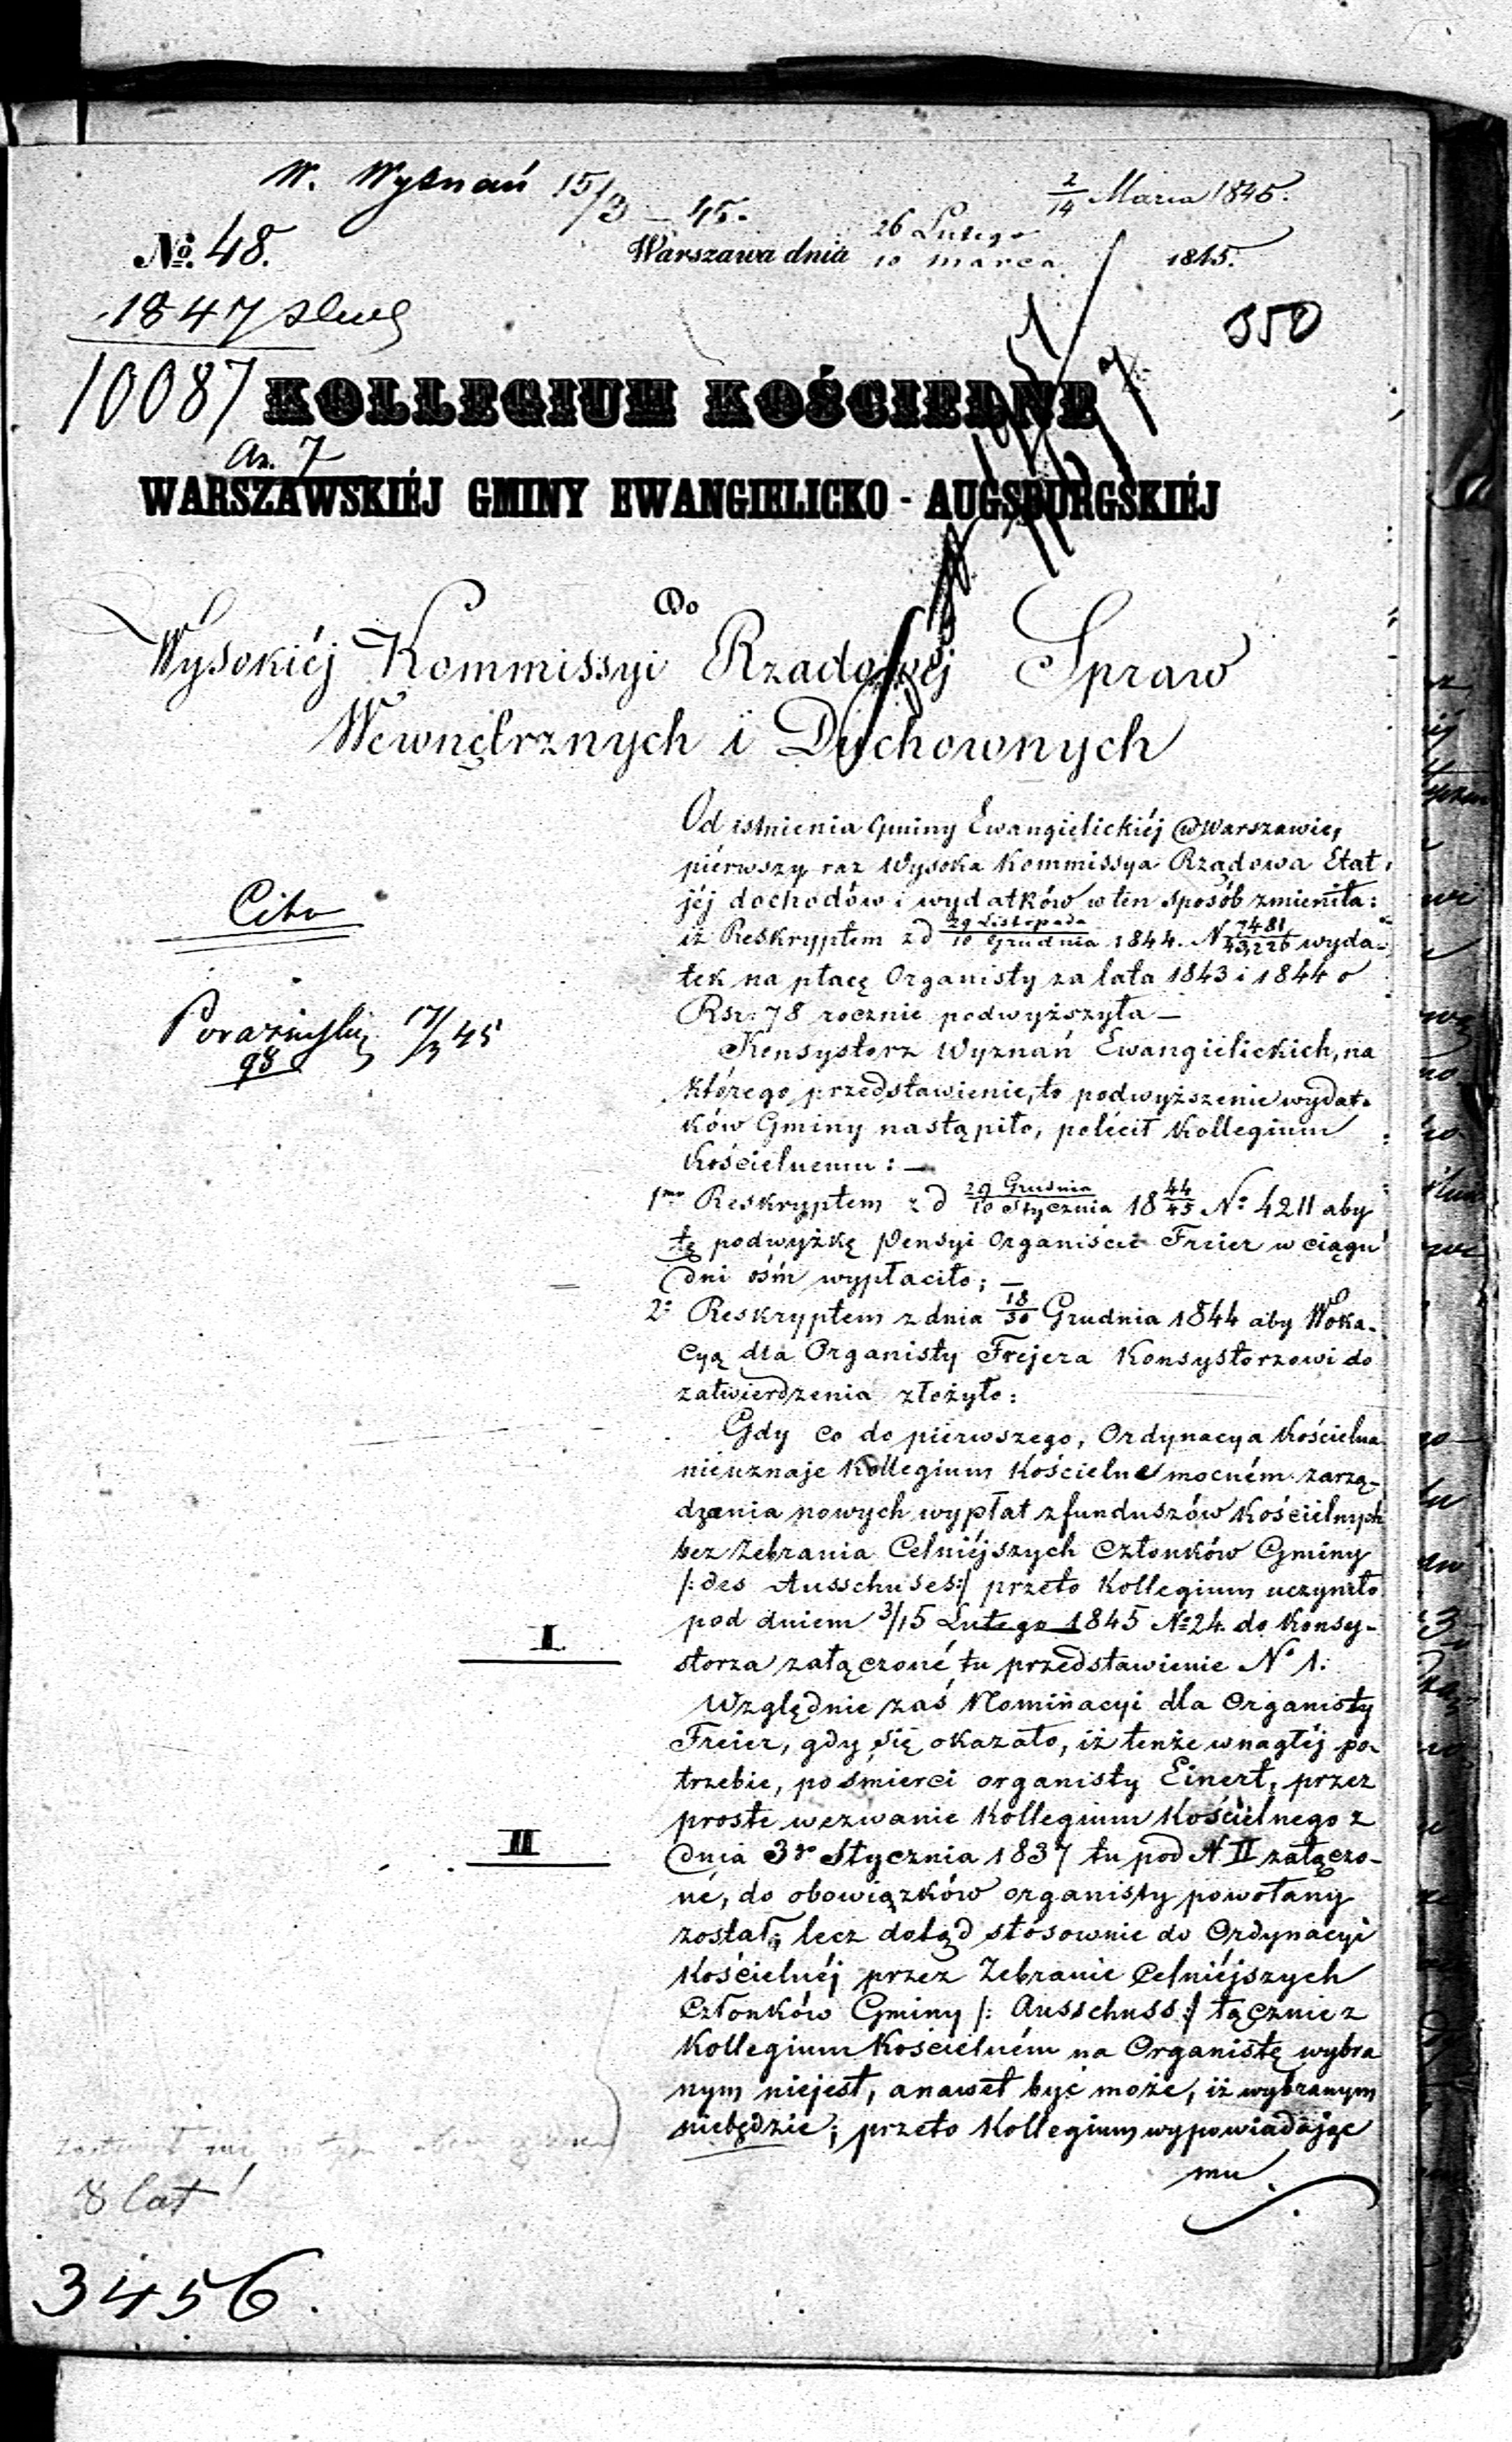 W. Wyznań 15/3 – 45.
2/14 Marca 1845.
No. 48.
Warszawa dnia 26 Lutego / 10 Marca 1845.
1847
350
10087
KOLLEGIUM KOŚCIELNE
7
WARSZAWSKIÉJ GMINY EWANGIELICKO - AUGSBURGSKIÉJ
Do
Wysokiéj Kommissyi Rządowéj Spraw
Wewnętrznych i Duchownych
Od istnienia Gminy Ewangielickiéj w Warszawie,
piérwszy raz Wysoka Kommissya Rządowa Etat
jéj dochodów i wydatków w ten sposób zmieniła:
Cito
iż Reskryptem z d 29 Listopada / 10 Grudnia 1844. N 7481/43,226 wyda-
tek na płacę Organisty za lata 1843 i 1844 o
Rsr: 78 rocznie podwyższyła —
17/3 45
98
Konsystorz Wyznań Ewangielickich, na
którego przedstawienie, to podwyższenie wydat-
ków Gminy nastąpiło, polécił Kollegium
Kościelnemu: —
1mo Reskryptem z d 29 Grudnia / 10 Stycznia 18 44/45 No 4211 aby
tę podwyżkę Pensyi Organiście Freier w ciągu
dni ośm wypłaciło; —
2o Reskryptem z dnia 18/30 Grudnia 1844 aby Woka-
cyą dla Organisty Frejera Konsystorzowi do
zatwierdzenia złożyło:
Gdy co do piérwszego, Ordynacya Kościelna
nieuznaje Kollegium Kościelne mocném zarzą-
dzania nowych wypłat z funduszów Kościelnych
bez Zebrania Celniéjszych Członków Gminy
/: des Ausschuses:/ przeto Kollegium uczyniło
pod dniem 3/15 Lutego 1845 No 24 do Konsy-
I
storza załączoné tu przedstawienie No 1:
Względnie zaś Nominacyi dla Organisty
Freier, gdy się okazało, iż tenże w nagłéj po-
trzebie, po śmierci organisty Einert, przez
proste wezwanie Kollegium Kościelnego z
II
dnia 3go Stycznia 1837 tu pod N II załączo-
né, do obowiązków organisty powołany
został, lecz dotąd stósownie do Ordynacyi
Kościelnéj przez Zebranie Celniéjszych
Członków Gminy /: Ausschuss :/ łącznie z
Kollegium Kościelném na Organistę wybra
nym niejest, a nawet być może, iż wybranym
niebędzie; przeto Kollegium wypowiadając
mu
8 lat!
3456.